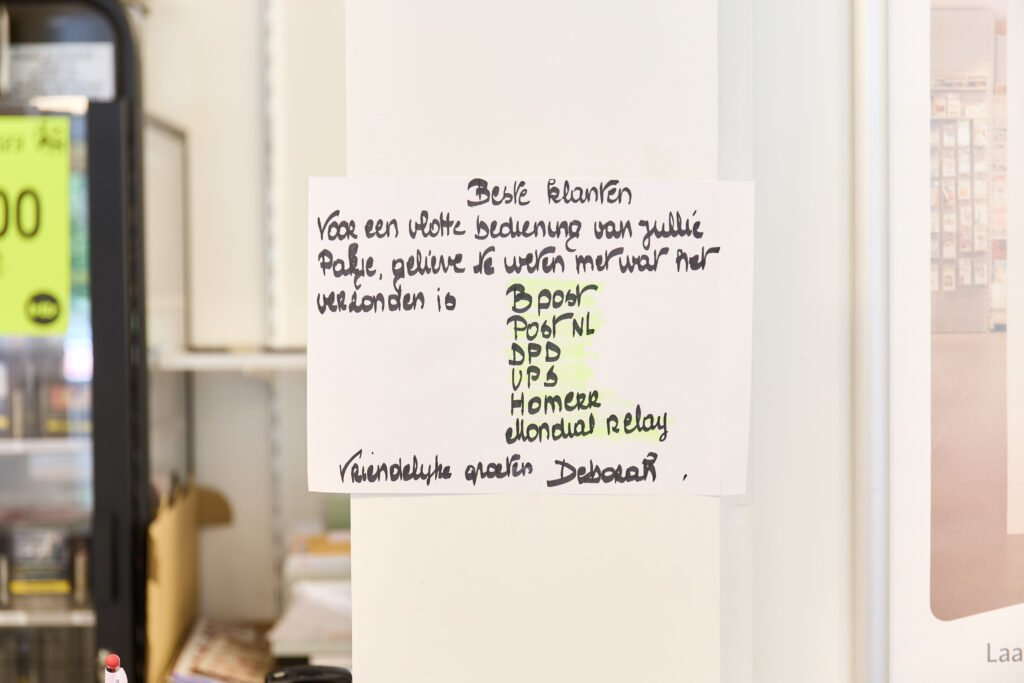 Beste klanten
Voor een vlotte bediening van jullie
Pakje, gelieve te weten met wat het
verzonden is
Bpost
Post NL
DPD
UPS
Homerr
Mondial Relay
Vriendelijke groeten Deborah.
00
Laa